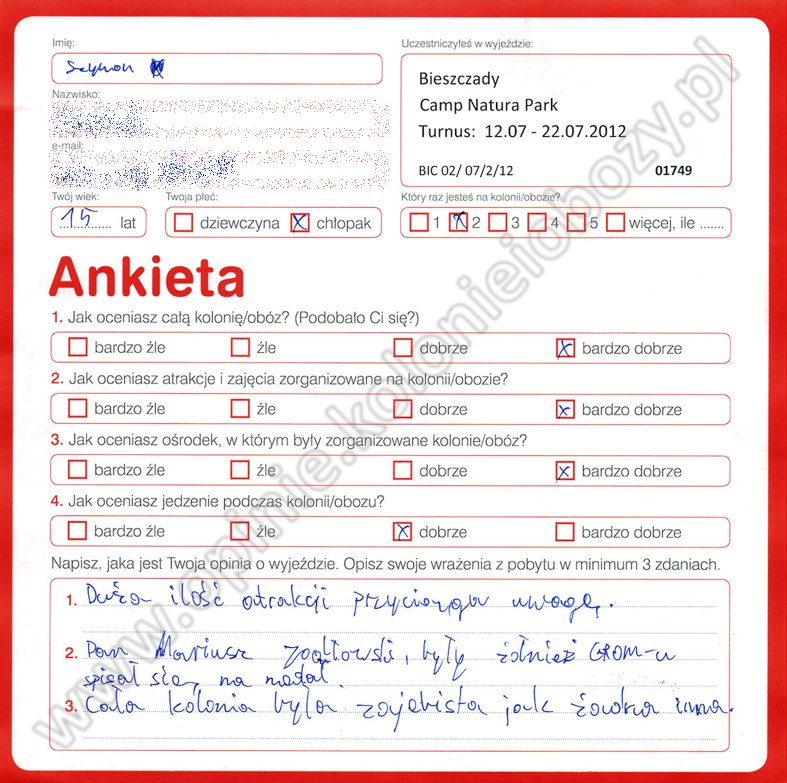 Imię:
Szymon
Nazwisko:
e-mail:
Twój wiek:
15 lat
Twoja płeć:
dziewczyna chłopak
Uczestniczyłeś w wyjeździe:
Bieszczady
Camp Natura Park
Turnus: 12.07 - 22.07.2012
BIC 02/ 07/2/12 01749
Który raz jesteś na kolonii/obozie?
1 2 3 4 5 więcej, ile .......
Ankieta
1. Jak oceniasz całą kolonię/obóz? (Podobało Ci się?)
bardzo źle źle dobrze bardzo dobrze
2. Jak oceniasz atrakcje i zajęcia zorganizowane na kolonii/obozie?
bardzo źle źle dobrze bardzo dobrze
3. Jak oceniasz ośrodek, w którym były zorganizowane kolonie/obóz?
bardzo źle źle dobrze bardzo dobrze
4. Jak oceniasz jedzenie podczas kolonii/obozu?
bardzo źle źle dobrze bardzo dobrze
Napisz, jaka jest Twoja opinia o wyjeździe. Opisz swoje wrażenia z pobytu w minimum 3 zdaniach.
1. Duża ilość atrakcji przyciąga uwagę.
2. Pan Mariusz, były żołnież GROM-u
spisał się na medal.
3. Cała kolonia była zajebista jak żadna inna.
www.opinie.kolonieiobozy.pl